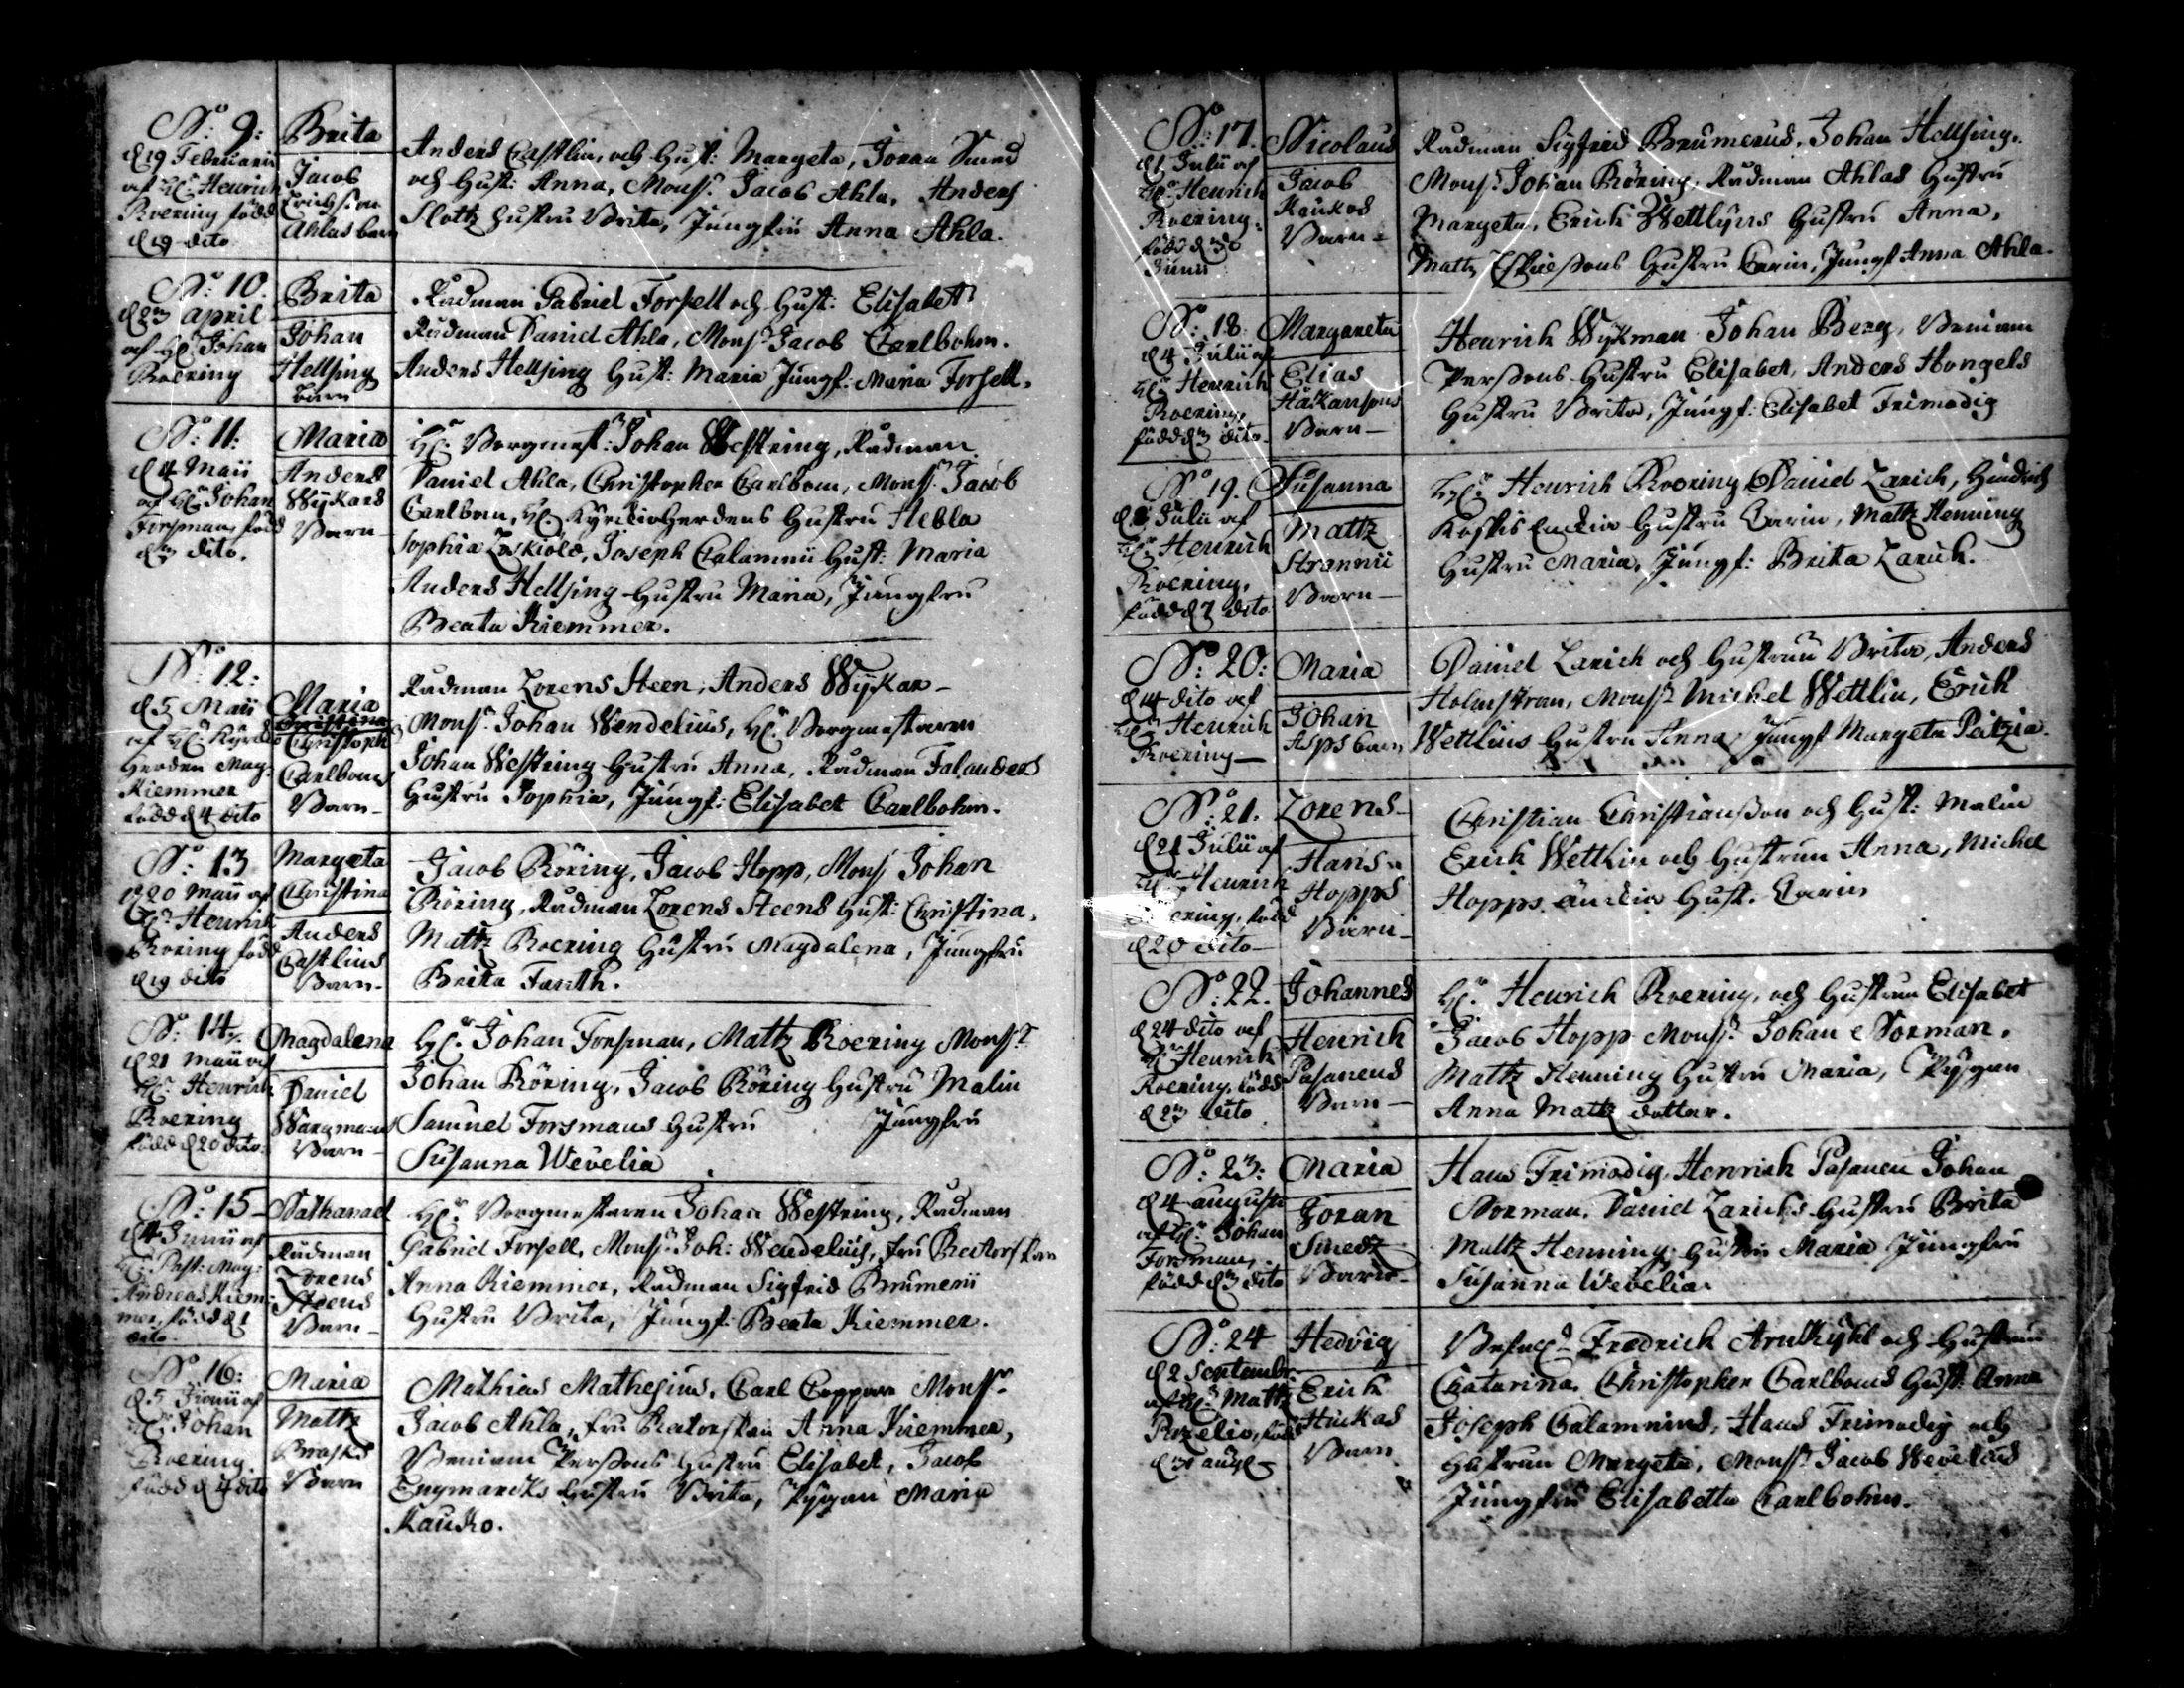 No: 9:
d 19 Februarii
af Hr Henrich
Roering född
d 19 dito
Brita
Jacob
Erichson
Ahlas barn
Anders Castlin, och Hust: Margeta, Joran Smed
och Hust: Anna, Monsr. Jacob Ahla, Anders
Slottz hustru Brita, Jungfru Anna Ahla.
No: 10.
d 23 April
af Hr Johan
Roering
Brita
Johan
Hellsing
barn
Rådman Gabriel Forsell och Hust: Elisabet
Rådman Daniel Ahla, Monsr Jacob Carlbohm.
Anders Hellsing Hust: Maria Jungf: Maria Forsell.
No: 11:
d 4 Maii
af Hr Johan
Forsman, född
d 3 dito.
Maria
Anders
Wijkars
Barn
Hr. Borgmest: Johan Westring, Rådman
Daniel Ahla, Christopher Carlbom, Monsr. Jacob
Carlbom, Hr Kyrckioherdens Hustru Hebla
Sophia, Joseph Calamnii Hust: Maria
Anders Hellsing Hustru Maria, Jungfru
Beata Kiemmer.
No: 12:
d 5 Maii
af Hr. Kyrckio
Herden Mag.
Kiemmer
född d 4 dito
Maria
Christina
Christoph
Carlboms
Barn
Rådman Lorens Steen, Anders Wijkar
Monsr. Johan Wendelius, Hr. Borgmestaren
Johan Westring Hustru Anna, Rådman Falanders
Hustru Sophia, Jungf: Elisabet Carlbohm.
No: 13
d 20 Maii af
Hr Henrich
Roering född
d 19 dito
Margeta
Christina
Anders
Castlins
Barn
Jacob Röring, Jacob Hopp, Mons Johan
Röring, Rådman Lorens Steens Hust: Christina,
Mattz Roering Hustru Magdalena, Jungfru
Brita Fanth.
No: 14.
d 21 Maii af
Hr. Henrich
Roering
född d 20 dito
Magdalena
Daniel
Wargmans
Barn
Hr. Johan Forsman, Mattz Roering Monsr.
Johan Röring, Jacob Röring Hustru Malin
Samuel Forsmans Hustru Jungfru
Susanna Wevelia
No: 15
d 4 Junii af
Hr. Past: Mag:
Andreas Kiem-
mer, född d 1
dito
Nathanael
Rådman
Lorens
Steens
Barn
Hr. Borgmestaren Johan Westring, Rådman
Gabriel Forsell, Monsr. Joh: Wendelius, fru Rectorskan
Anna Kiemmer, Rådman Sigfrid Brumerii
Hustru Brita, Jungf: Beata Kiemmer.
No 16:
d 5 Junii af
Hr. Johan
Roering
född d 4 dito
Maria
Mattz
Brasks
Barn
Mathias Mathesius, Carl Coppare Monsr.
Jacob Ahla, fru Rectorskan Anna Kiemmer,
Beniam Perssons Hustru Elisabet, Jacob
Engmarcks Hustru Brita, Pygan Maria
Kauko.
No: 17.
d 1 Julii af
Hr Henrich
Roering.
född d 30
Junii
Nicolaus
Jacob
Kaukos
Barn
Rådman Sigfrid Brumerus, Johan Hellsing,
Monsr Johan Röring, Rådman Ahlas Hustru
Margeta, Erich Wettlijns Hustru Anna,
Mattz Hustru Carin, Jungf Anna Ahla.
No: 18.
d 4 Julii af
Hr Henrich
Roering,
född d 3 dito
Margareta
Elias
Håkansons
Barn
Henrich Wijkman Johan Berg, Beniam
Perssons Hustru Elisabet, Anders Hongels
Hustru Brita, Jungf: Elisabet Frimodig
No 19.
d 8 Julii af
Hr Henrich
Roering,
född d 7 dito
Susanna
Mattz
Strannii
Barn
Hr. Henrich Roering Daniel Larich, Hindrich
Koskis Enckia Hustru Carin, Mattz Henning
Hustru Maria, Jungf: Brita Larich.
No: 20:
d 14 dito af
Hr Henrich
Roering
Maria
Johan
Asps barn
Daniel Larich och Hustrun Brita, Anders
Holmstram, Monsr Michel Wettlin, Erich
Wettlins Hustru Anna Jungf Margeta Peitzia.
No: 21.
d 21 Julii af
Hr Henrich
Roering, född
d 20 dito
Lorens
Hans
Hopps
Barn
Christian Christiansson och Hust: Malin
Erich Wettlin och Hustrun Anna, Michel
Hopps änckia Hust. Carin
No: 22.
d 24 dito af
Hr Henrich
Roering, född
d 23 dito
Johannes
Henrich
Pasanens
Barn
Hr. Henrich Roering, och Hustrun Elisabet
Jacob Hopp Monsr. Johan Norman,
Mattz Henning Hustru Maria, Pygan
Anna Mattz dotter.
No: 23:
d 4 augusti
af Hr. Johan
Forsman,
född d 3 dito
Maria
Joran
Smedz
Barn
Hans Frimodig, Henrich Pasanen Johan
Norman, Daniel Larichs Hustru Brita
Mattz Henning Hustru Maria Jungfru
Susanna Wevelia.
No: 24
d 2 Septembr.
af Hr Mattz
född
d 31 aug
Hedvig
Erich
Huckas
Barn
Fredrich Arnkijhl och Hustrun
Catarina, Christopher Carlboms Hust: Anna
Joseph Calamnius, Hans Frimodig och
Hustrun Margeta, Monsr Jacob Wevelius
Jungfru Elisabetta Carlbohm.